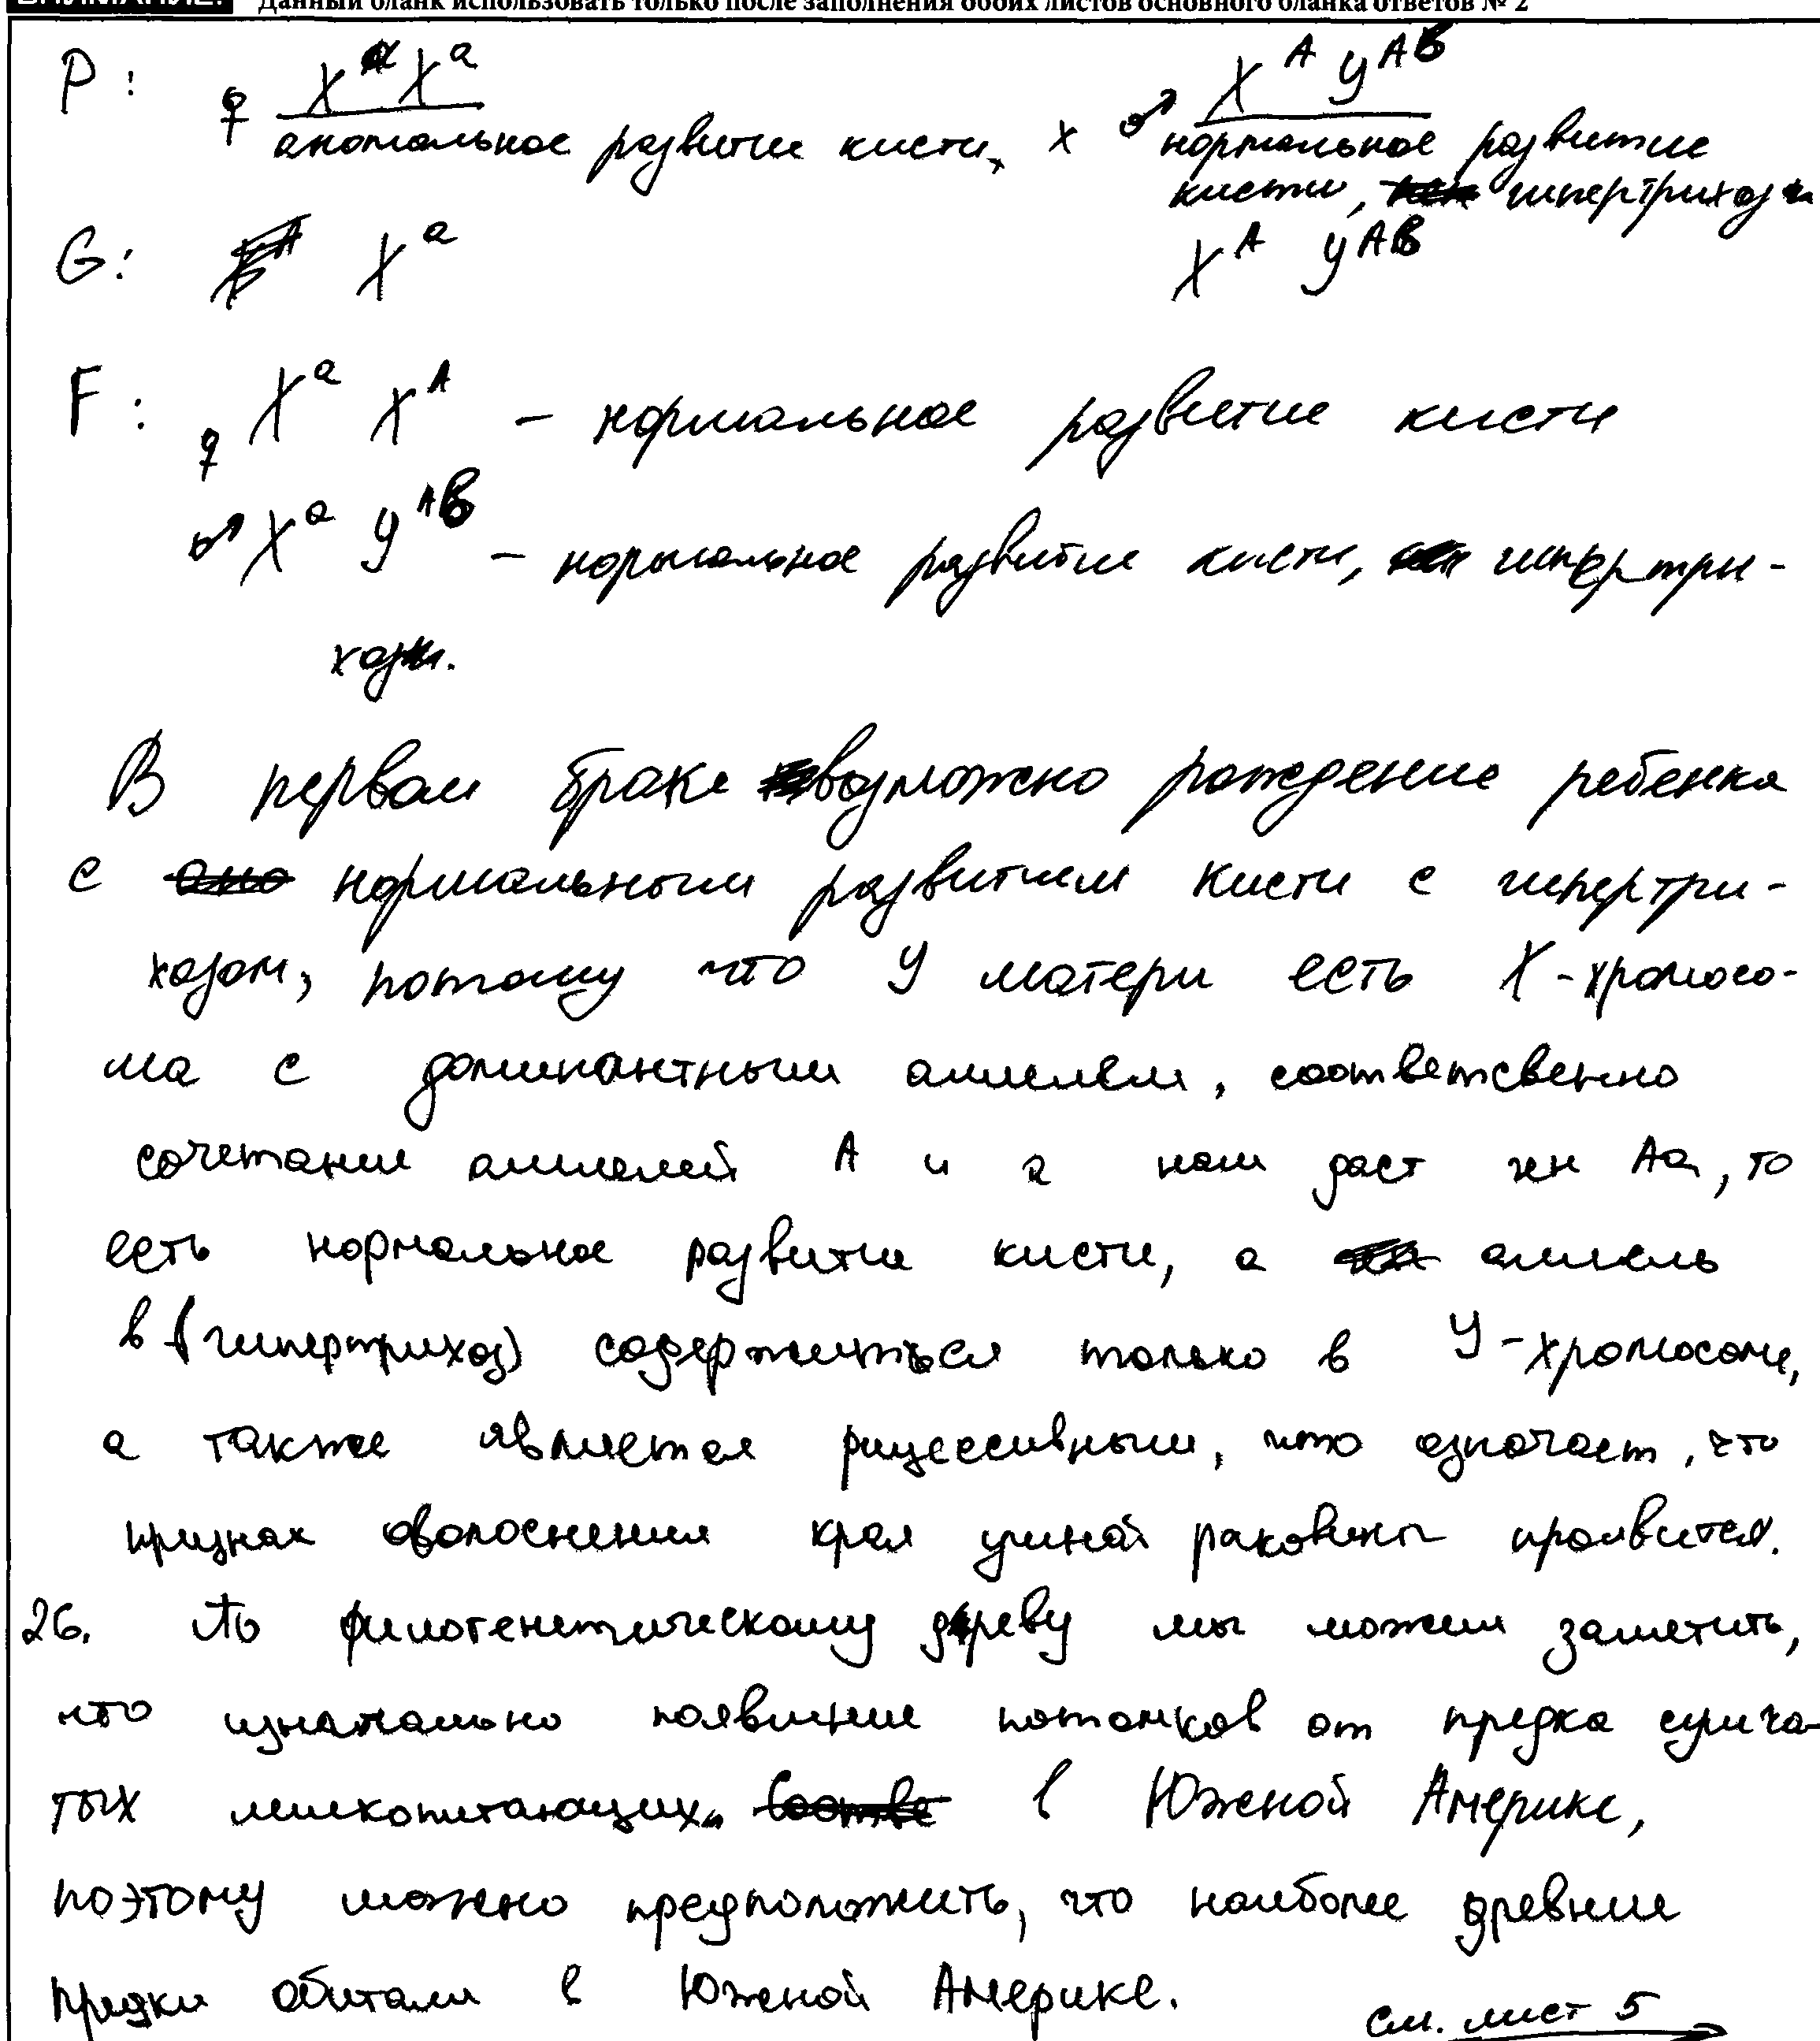 ВНИМАНИЕ! Данный бланк использовать только после заполнения обоих листов основного бланка ответов № 2
P: ♀ XᵃXᵃ x ♂ Xᴬ yᴬᴮ
аномальное развитие кисти, нормальное развитие
кисти, гипертрихоз
G: Xᵃ Xᴬ yᴬᴮ
F: ♀ Xᵃ Xᴬ – нормальное развитие кисти
♂ Xᵃ yᴬᴮ – нормальное развитие кисти, гипертри-
хоз.
В первом браке возможно рождение ребенка
с нормальным развитием кисти с гипертри-
хозом, потому что У матери есть X-хромосо-
ма с доминантным аллелем, соответсвенно
сочетание аллелей А и а нам даст ген Аа, то
есть нормальное развитие кисти, а аллель
в (гипертрихоз) содержиться только в У-хромосоме,
а также является рецессивным, что означает, что
признак оволоснения края ушной раковины проявится.
26. По филогенетическому древу мы можем заметить,
что изначально появление потомков от предка сумча-
тых млекопитающих в Южной Америке,
поэтому можно предположить, что наиболее древние
предки обитали в Южной Америке.
см. лист 5